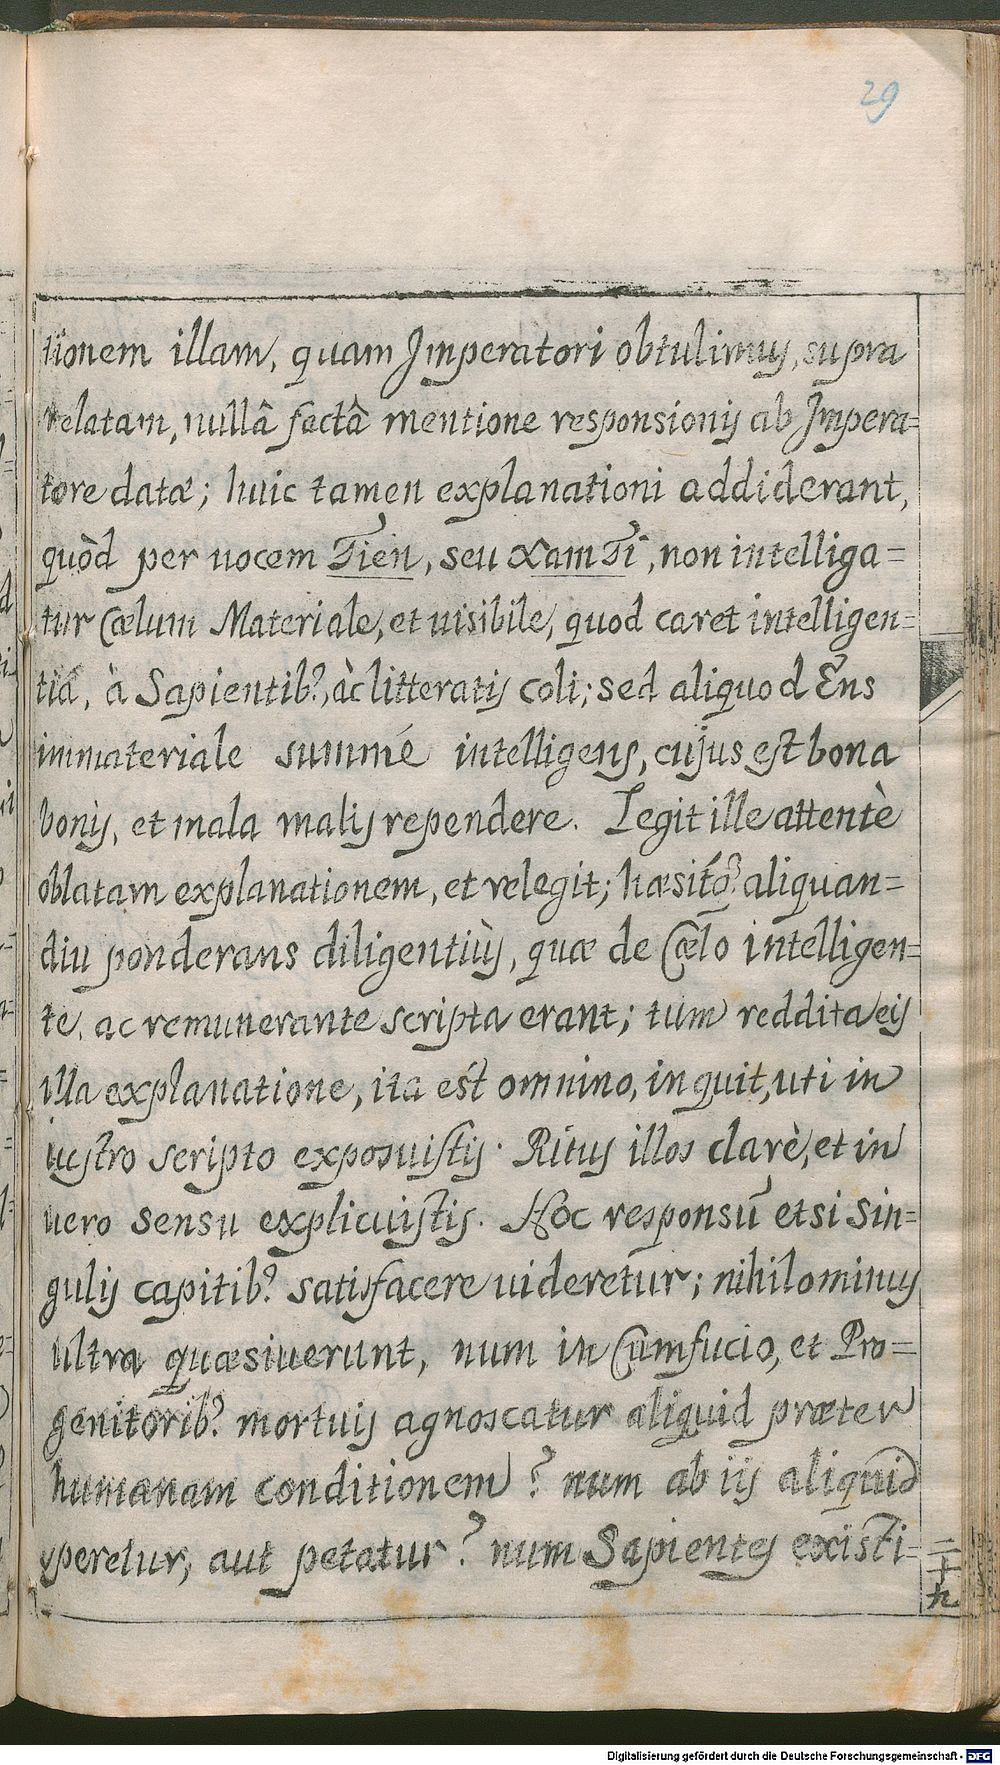 29
tionem illam, quam Imperatori obtulimus, supra
relatam, nullâ factâ mentione responsionis ab Impera=
tore datæ; huic tamen explanationi addiderant,
quòd per uocem Tien, seu Xam Ti, non intelliga=
tur Cœlum Materiale, et uisibile, quod caret intelligen=
tiâ, à Sapientib9, àc litteratis coli; sed aliquod Ens
immateriale summè intelligens, cujus est bona
bonis, et mala malis rependere. Legit ille attentè
oblatam explanationem, et relegit; hæsitq3 aliquan=
diu ponderans diligentiùs, quæ de Cœlo intelligen=
te, ac remunerante scripta erant; tum reddita eis
illa explanatione, ita est omnino, inquit, uti in
uestro scripto exposuistis. Ritus illos clarè, et in
uero sensu explicuistis. Hoc responsū etsi sin=
gulis capitib9 satisfacere uideretur; nihilominus
ultra quæsiuerunt, num in Cumfucio, et Pro=
genitorib9 mortuis agnoscatur aliquid præter
humanam conditionem? num ab iis aliquid
speretur, aut petatur? num Sapientes existi=
二十九
Digitalisierung gefördert durch die Deutsche Forschungsgemeinschaft - DFG